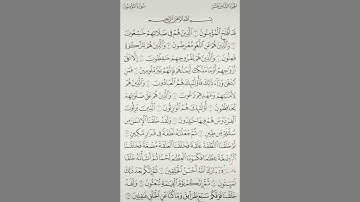 الجزء الثامن عشر سورة المؤمنون
بِسْمِ ٱللَّهِ ٱلرَّحْمَٰنِ ٱلرَّحِيمِ
قَدْ أَفْلَحَ ٱلْمُؤْمِنُونَ ١ ٱلَّذِينَ هُمْ فِى صَلَاتِهِمْ خَٰشِعُونَ ٢
وَٱلَّذِينَ هُمْ عَنِ ٱللَّغْوِ مُعْرِضُونَ ٣ وَٱلَّذِينَ هُمْ لِلزَّكَوٰةِ
فَٰعِلُونَ ٤ وَٱلَّذِينَ هُمْ لِفُرُوجِهِمْ حَٰفِظُونَ ٥ إِلَّا عَلَىٰٓ
أَزْوَٰجِهِمْ أَوْ مَا مَلَكَتْ أَيْمَٰنُهُمْ فَإِنَّهُمْ غَيْرُ مَلُومِينَ ٦ فَمَنِ
ٱبْتَغَىٰ وَرَآءَ ذَٰلِكَ فَأُو۟لَٰٓئِكَ هُمُ ٱلْعَادُونَ ٧ وَٱلَّذِينَ هُمْ
لِأَمَٰنَٰتِهِمْ وَعَهْدِهِمْ رَٰعُونَ ٨ وَٱلَّذِينَ هُمْ عَلَىٰ صَلَوَٰتِهِمْ
يُحَافِظُونَ ٩ أُو۟لَٰٓئِكَ هُمُ ٱلْوَٰرِثُونَ ١٠ ٱلَّذِينَ يَرِثُونَ
ٱلْفِرْدَوْسَ هُمْ فِيهَا خَٰلِدُونَ ١١ وَلَقَدْ خَلَقْنَا ٱلْإِنسَٰنَ مِن
سُلَٰلَةٍ مِّن طِينٍ ١٢ ثُمَّ جَعَلْنَٰهُ نُطْفَةً فِى قَرَارٍ مَّكِينٍ ١٣
ثُمَّ خَلَقْنَا ٱلنُّطْفَةَ عَلَقَةً فَخَلَقْنَا ٱلْعَلَقَةَ مُضْغَةً فَخَلَقْنَا
ٱلْمُضْغَةَ عِظَٰمًا فَكَسَوْنَا ٱلْعِظَٰمَ لَحْمًا ثُمَّ أَنشَأْنَٰهُ خَلْقًا
ءَاخَرَ فَتَبَارَكَ ٱللَّهُ أَحْسَنُ ٱلْخَٰلِقِينَ ١٤ ثُمَّ إِنَّكُم بَعْدَ ذَٰلِكَ
لَمَيِّتُونَ ١٥ ثُمَّ إِنَّكُمْ يَوْمَ ٱلْقِيَٰمَةِ تُبْعَثُونَ ١٦ وَلَقَدْ
خَلَقْنَا فَوْقَكُمْ سَبْعَ طَرَآئِقَ وَمَا كُنَّا عَنِ ٱلْخَلْقِ غَٰفِلِينَ ١٧